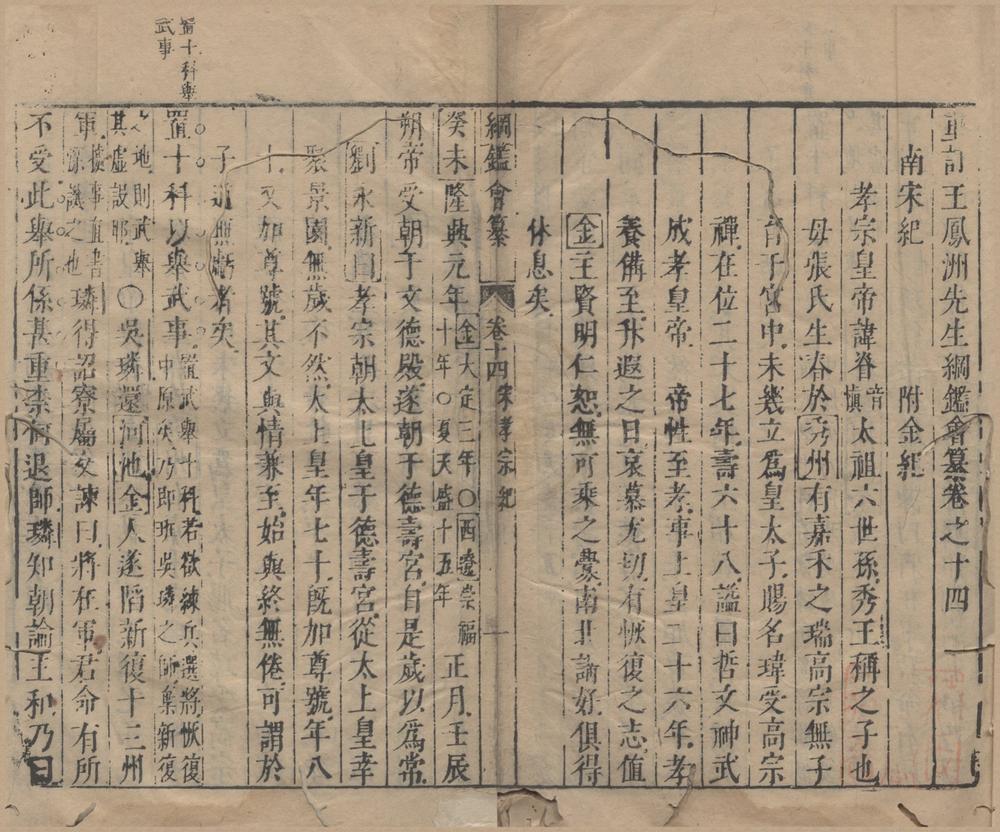 重訂王鳳洲先生綱鑑會纂卷之十四
南宋紀 附金紀
孝宗皇帝諱眘音慎太祖六世孫秀王稱之子也
母張氏生春於秀州有嘉禾之瑞高宗無子
育于宮中未幾立爲皇太子賜名瑋受高宗
禪在位二十七年壽六十八諡曰哲文神武
成孝皇帝 帝性至孝事上皇二十六年孝
養備至升遐之日哀慕尤切有恢復之志值
金主賢明仁恕無可乘之釁南北講好俱得
休息矣
綱鑑會纂 卷十四 宋孝宗紀 一
癸未隆興元年金大定三年〇西遼崇福十年〇夏天盛十五年正月壬辰
朔帝受朝于文德殿遂朝于德壽宮自是歲以爲常
劉永新曰孝宗朝太上皇于德壽宮從太上皇幸
聚景園無歲不然太上皇年七十旣加尊號年八
十又加尊號其文與情兼至始與終無倦可謂於
子道無虧者矣
置十科舉武事
置十科以舉武事置武舉十科若欲練兵選將恢復中原矣乃即班吳璘之師棄新復
之地則武舉其虛設耶〇吳璘還河池金人遂陷新復十三州
軍據事直書深譏之也璘得詔寮屬交諫曰將在軍君命有所
不受此舉所係甚重柰何退師璘知朝論主和乃曰